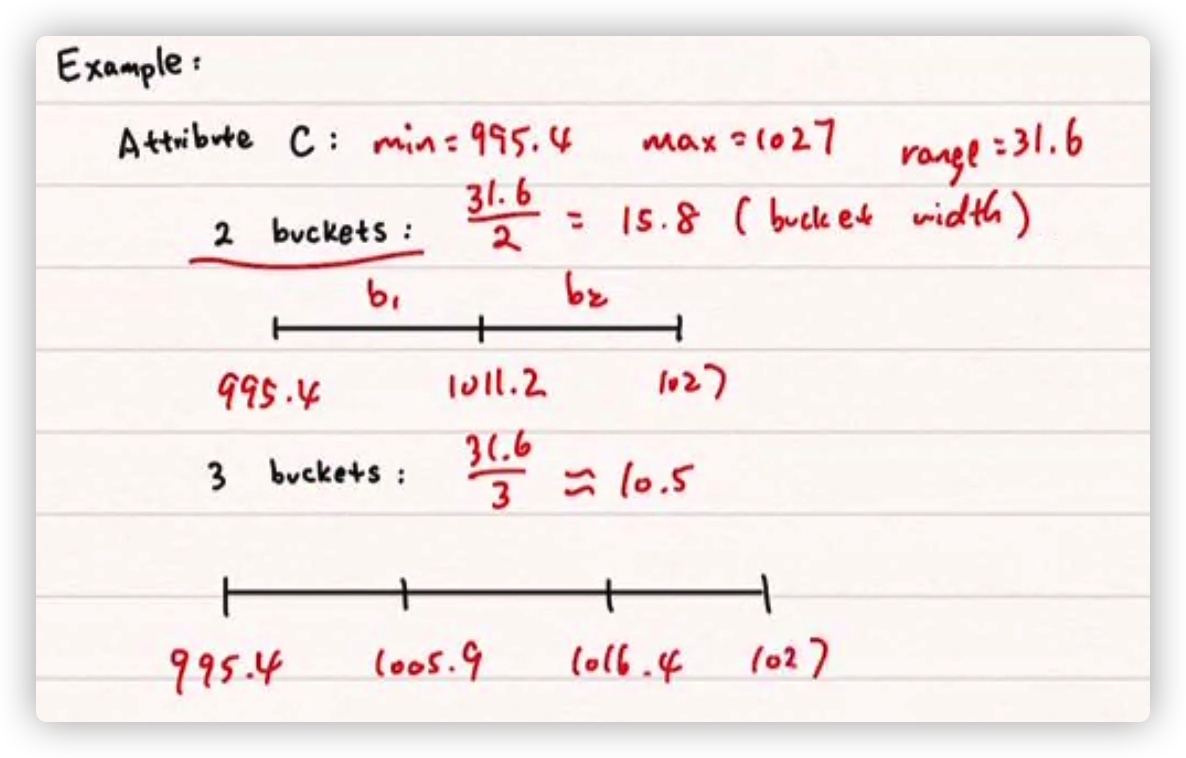 Example:
Attribute C: min=995.4 max=1027 range=31.6
2 buckets: 31.6/2 = 15.8 (bucket width)
b₁ b₂
995.4 1011.2 1027
3 buckets: 31.6/3 ≈ 10.5
995.4 1005.9 1016.4 1027